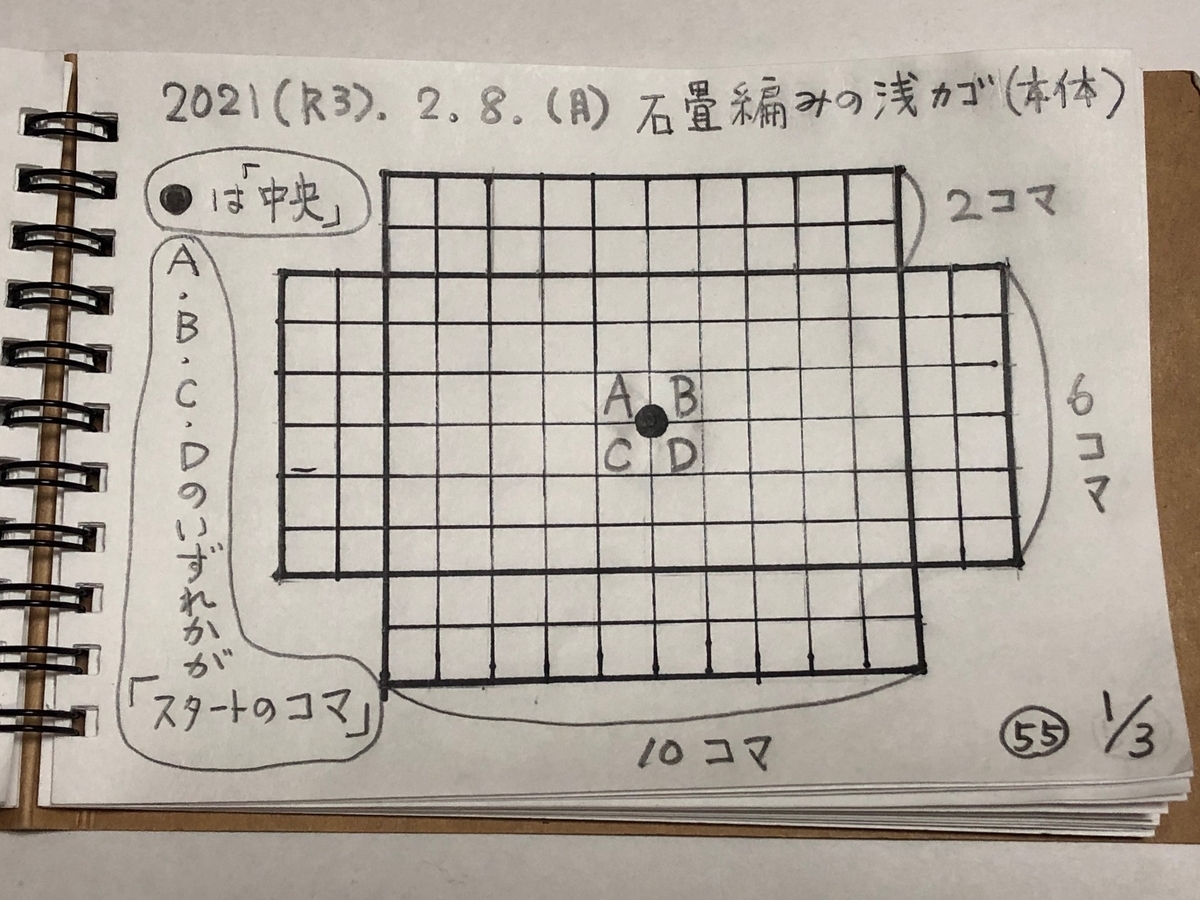 2021(R3). 2. 8. (月) 石畳編みの浅カゴ(本体)
●は「中央」
A・B・C・Dのいずれかが
「スタートのコマ」
2コマ
A B
C D
6コマ
10コマ
55 1/3